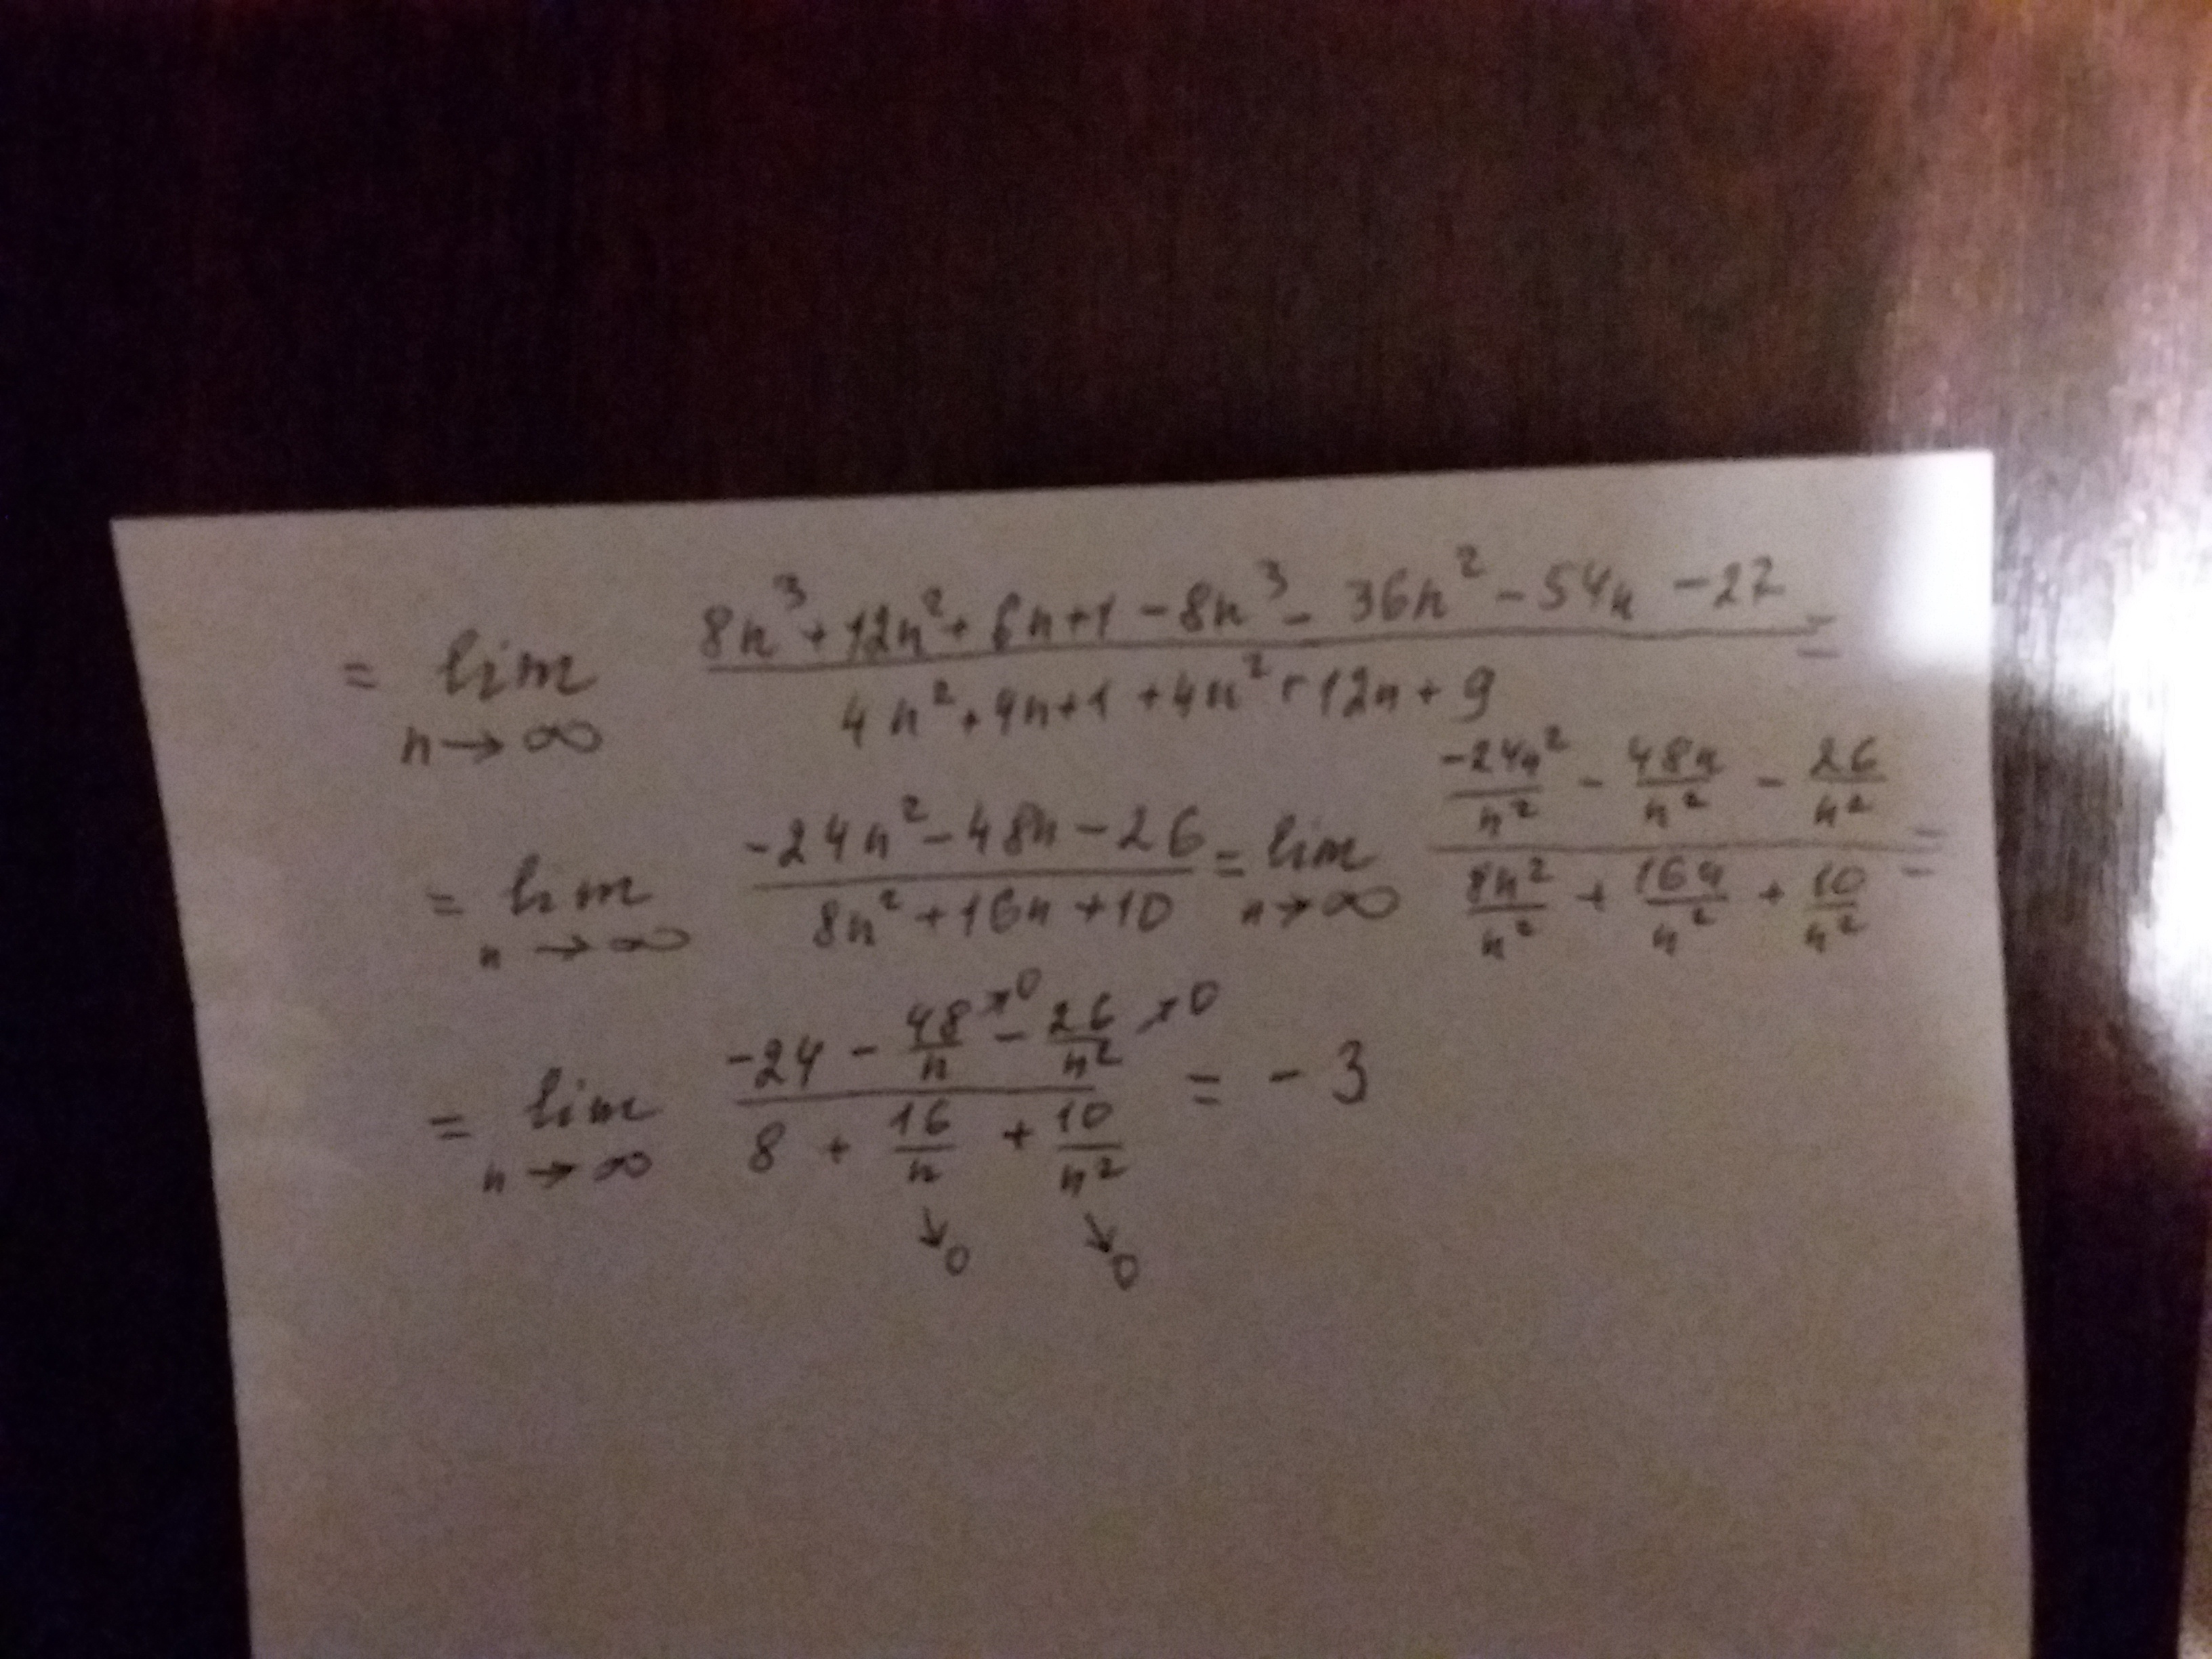 = lim n→∞ (8n³+12n²+6n+1-8n³-36n²-54n-27)/(4n²+4n+1+4n²+12n+9) =
= lim n→∞ (-24n²-48n-26)/(8n²+16n+10) = lim n→∞ (-24n²/n² - 48n/n² - 26/n²)/(8n²/n² + 16n/n² + 10/n²) =
= lim n→∞ (-24 - 48/n →0 - 26/n² →0)/(8 + 16/n + 10/n²) = -3
→0 →0